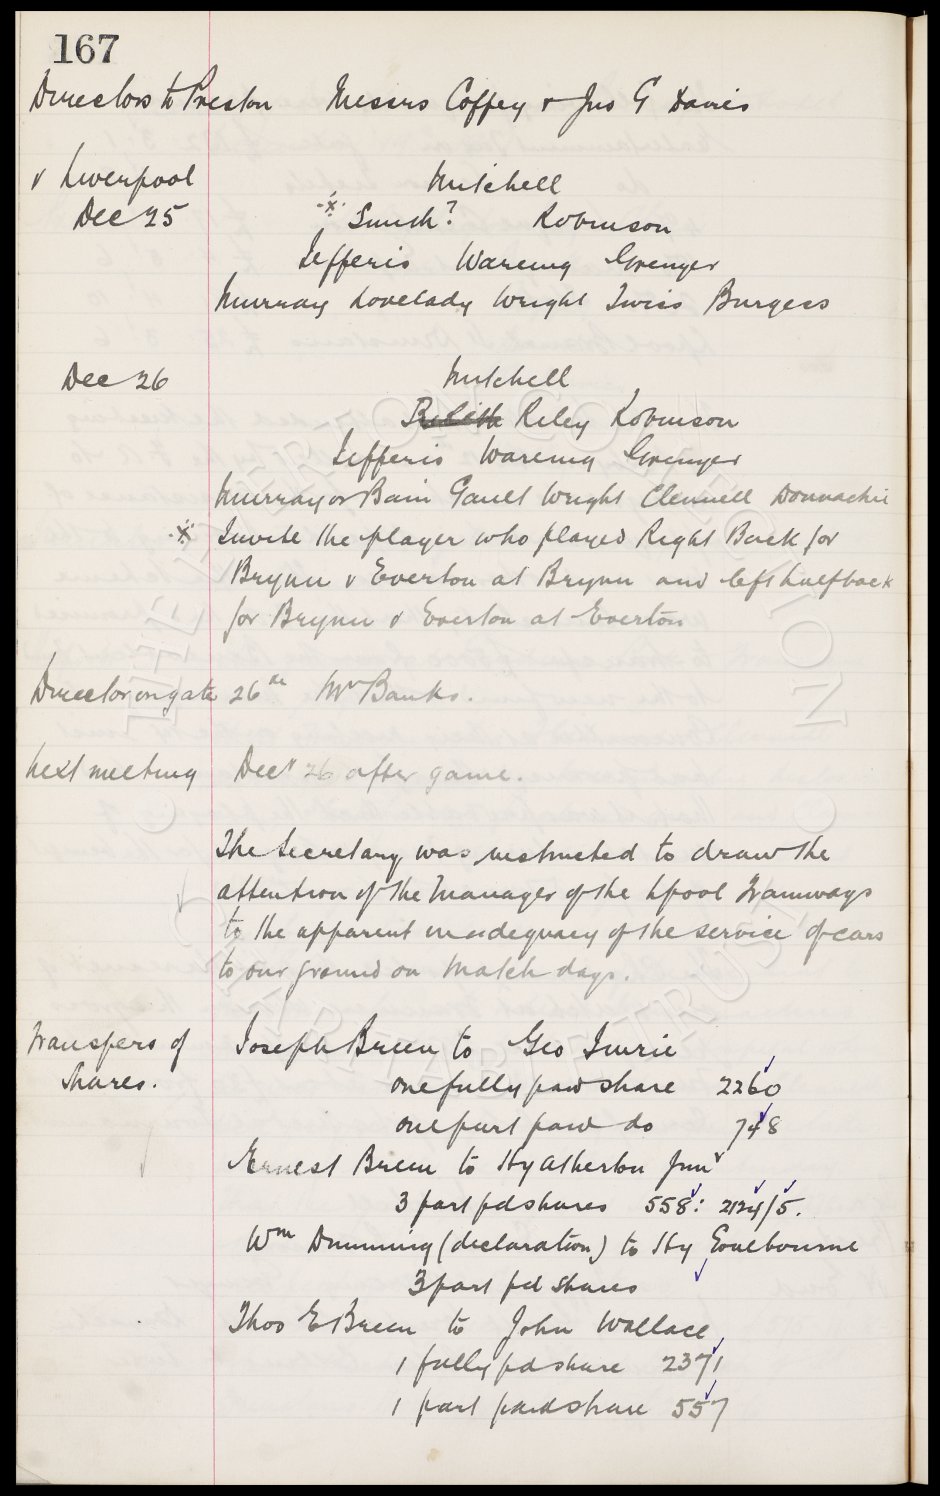 167
Directors to Preston Messrs Coffey & Jno G Davies
v Liverpool Mitchell
Dec 25 * Smith? Robinson
Jefferis Wareing Grenyer
Murray Lovelady Wright Twiss Burgess
Dec 26 Mitchell
Riley Robinson
Jefferis Wareing Grenyer
Murray or Bain Gault Wright Clennell Donnachie
* Invite the player who played Right Back for
Brynn v Everton at Brynn and left halfback
for Brynn v Everton at Everton
Director on gate 26th Mr Banks.
Next meeting Decr 26 after game.
The Secretary was instructed to draw the
attention of the Manager of the Lpool Tramways
to the apparent inadequacy of the service of cars
to our ground on match days.
Transfers of Joseph Breen to Geo Imrie
Shares. one fully paid share 2260
one part paid do 748
Ernest Breen to Hy Atherton Junr
3 part pd shares 558: 2124/5.
Wm Dumming (declaration) to Hy Goulbourne
3 part pd shares
Thos E Breen to John Wallace
1 fully pd share 2371
1 part paid share 557